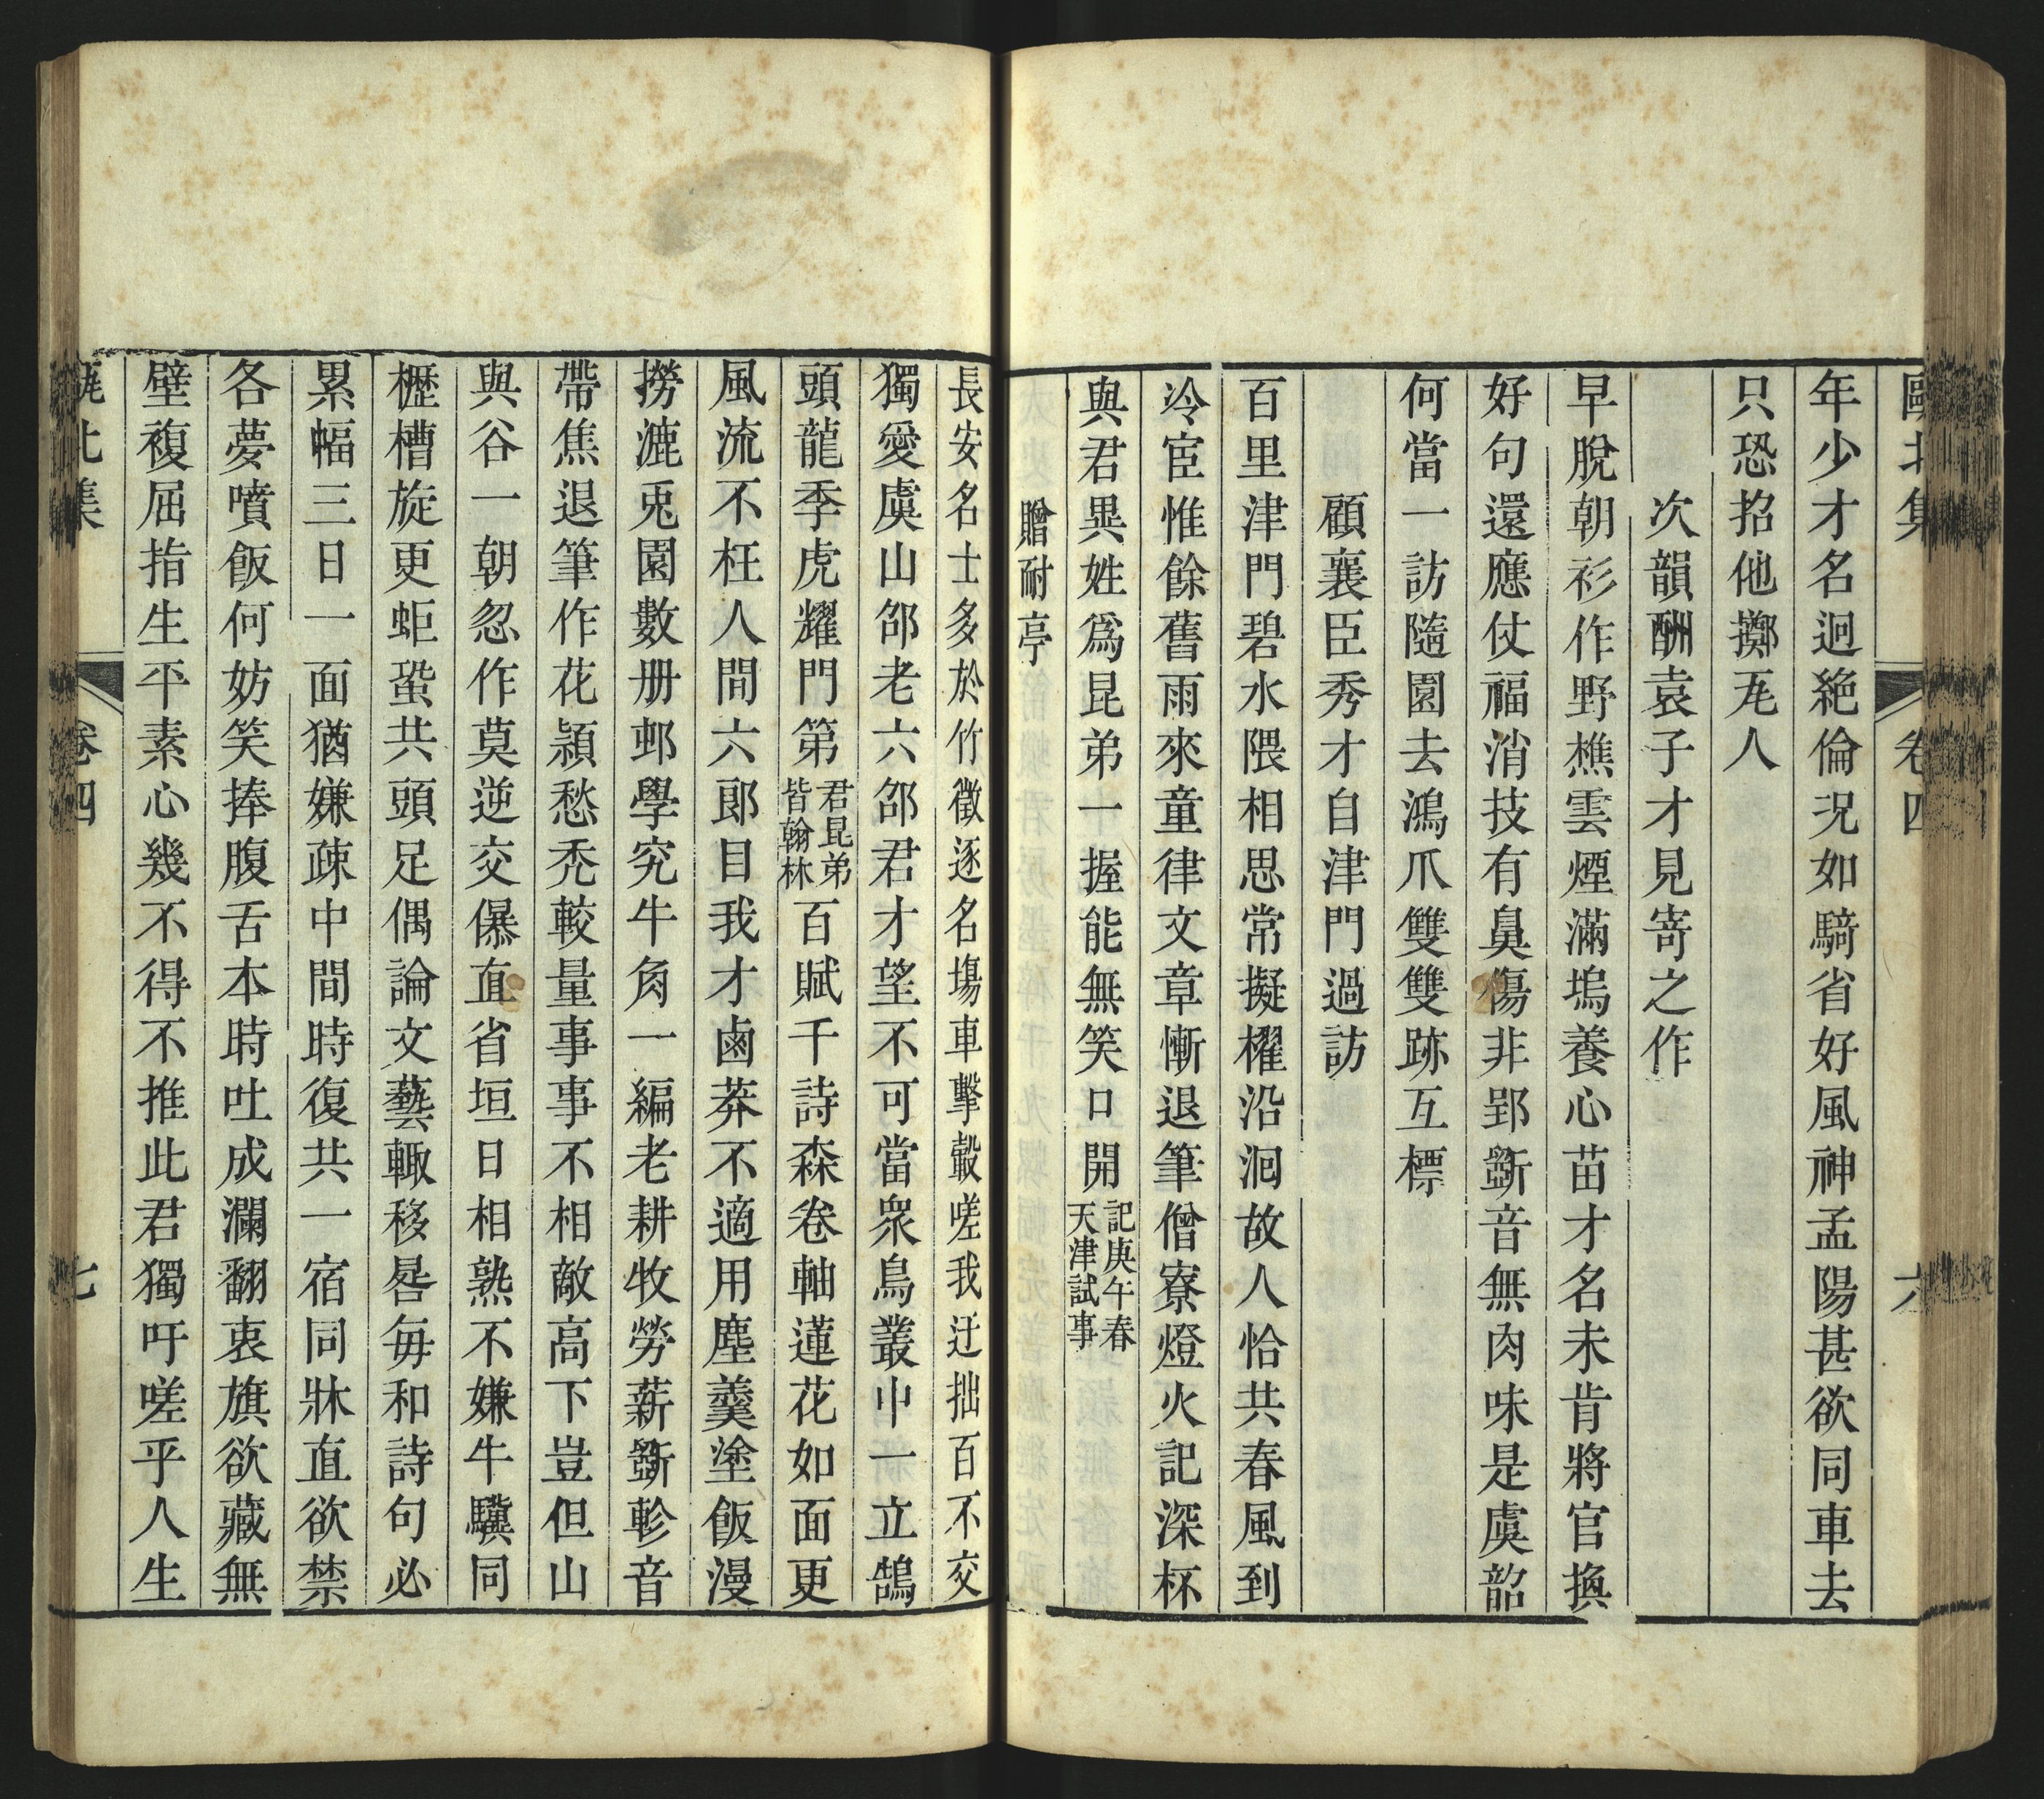 甌北集 卷四 六
年少才名迥絶倫况如騎省好風神孟陽甚欲同車去
只恐招他擲瓦人
次韻酬袁子才見寄之作
早脫朝衫作野樵雲煙滿塢養心苗才名未肯將官換
好句還應仗福消技有鼻傷非郢斵音無肉味是虞韶
何當一訪隨園去鴻爪雙雙跡互標
顧襄臣秀才自津門過訪
百里津門碧水隈相思常擬櫂沿洄故人恰共春風到
冷宦惟餘舊雨來童律文章慚退筆僧寮燈火記深杯
與君異姓爲昆弟一握能無笑口開記庚午春天津試事
贈耐亭
長安名士多於竹徵逐名塲車擊轂嗟我迂拙百不交
獨愛虞山邵老六邵君才望不可當衆鳥叢中一立鵠
頭龍季虎耀門第君昆弟皆翰林百賦千詩森卷軸蓮花如面更
風流不枉人間六郎目我才鹵莽不適用塵羹塗飯漫
撈漉兎園數册邨學究牛角一編老耕牧勞薪斵軫音
帶焦退筆作花潁愁禿較量事事不相敵高下豈但山
與谷一朝忽作莫逆交儤直省垣日相熟不嫌牛驥同
櫪槽旋更蚷蛩共頭足偶論文藝輙移晷每和詩句必
累幅三日一面猶嫌疎中間時復共一宿同牀直欲禁
各夢噴飯何妨笑捧腹舌本時吐成瀾翻衷旗欲藏無
壁複屈指生平素心幾不得不推此君獨吁嗟乎人生
甌北集 卷四 七